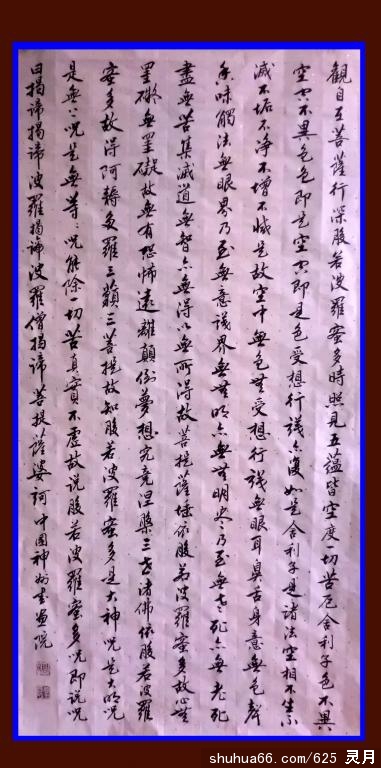 觀自在菩薩行深般若波羅蜜多時照見五蘊皆空度一切苦厄舍利子色不異
空空不異色色即是空空即是色受想行識亦復如是舍利子是諸法空相不生不
滅不垢不净不增不減是故空中無色無受想行識無眼耳鼻舌身意無色聲
香味觸法無眼界乃至無意識界無無明亦無無明盡乃至無老死亦無老死
盡無苦集滅道無智亦無得以無所得故菩提薩埵依般若波羅蜜多故心無
罣礙無罣礙故無有恐怖遠離顛倒夢想究竟涅槃三世諸佛依般若波羅
蜜多故得阿耨多羅三藐三菩提故知般若波羅蜜多是大神咒是大明咒
是無上咒是無等等咒能除一切苦真實不虛故說般若波羅蜜多咒即說咒
曰揭諦揭諦波羅揭諦波羅僧揭諦菩提薩婆訶 中国神州書画院
shuhua66.com/625 灵月